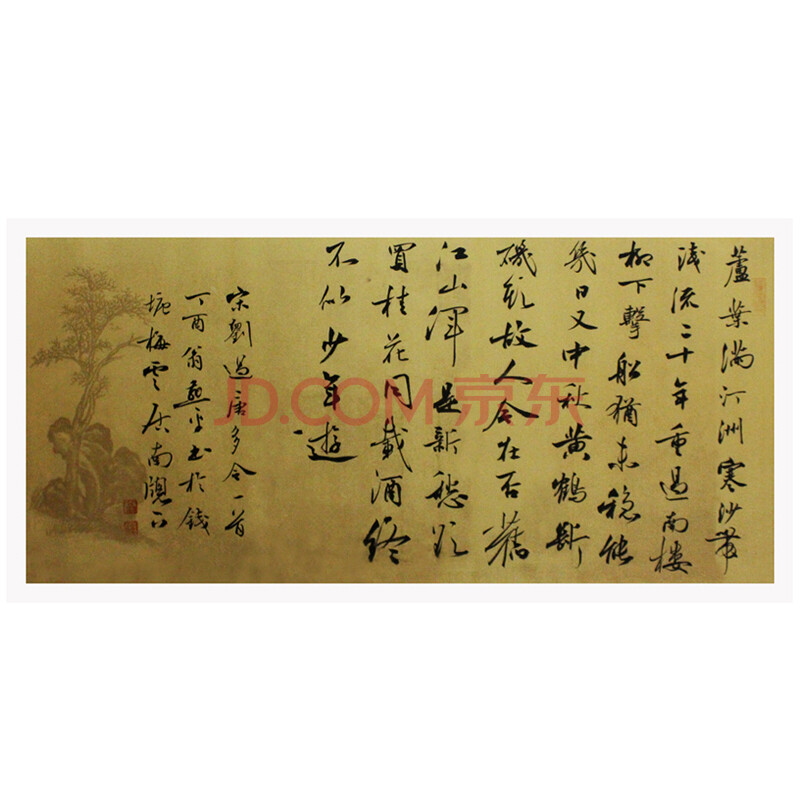 蘆葉滿汀洲寒沙帶
淺流二十年重過南樓
柳下擊船猶未穩能
幾日又中秋黃鶴斷
磯頭故人今在否舊
江山渾是新愁欲
買桂花同載酒終
不似少年遊
宋劉過唐多令一首
丁酉翁燕平書於錢
塘梅雪居南牕下
JD.COM 京东